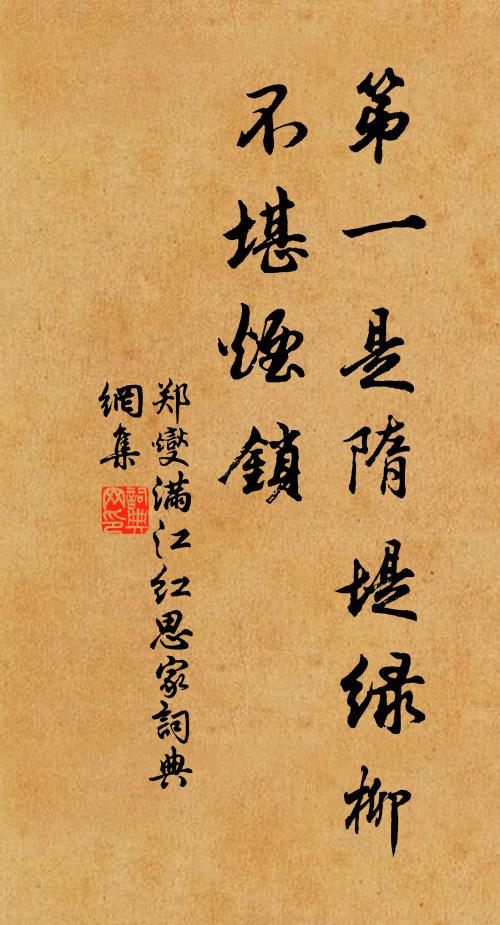 第一是隋堤绿柳
不堪煙鎖
郑燮满江红思家詞典
網集
詞典网印